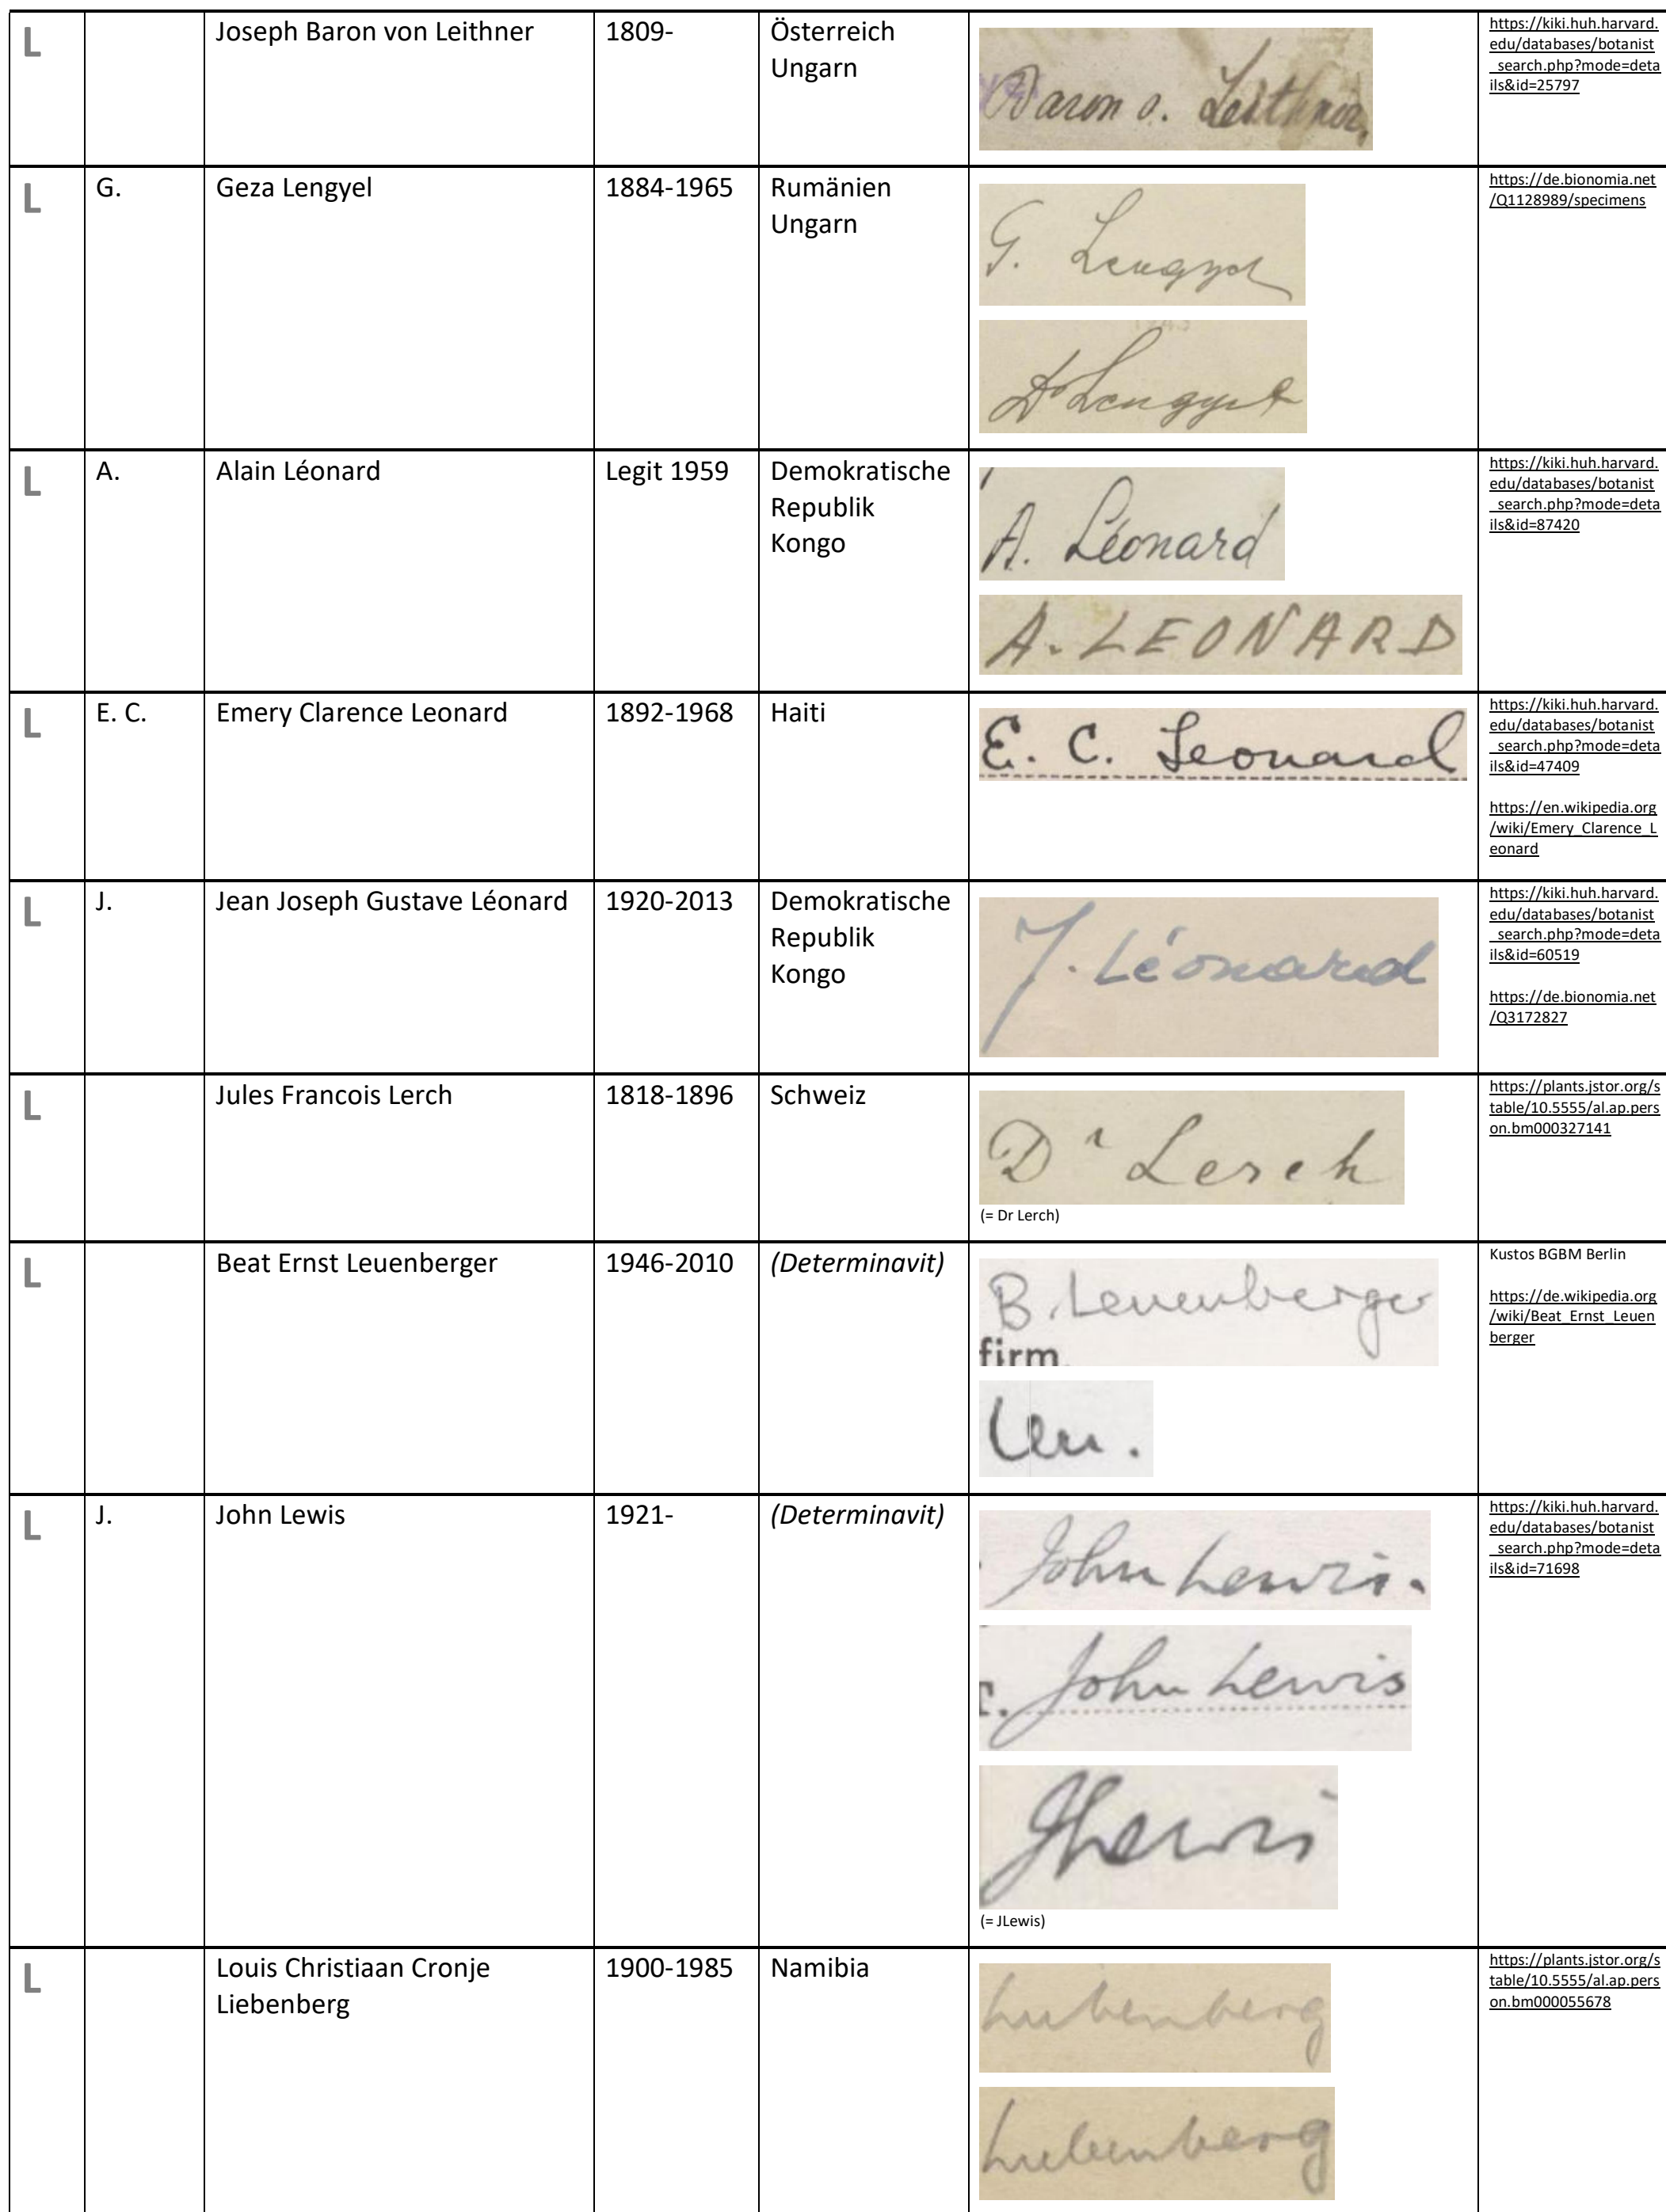 L
Joseph Baron von Leithner
1809-
Österreich
Ungarn
Baron v. Leithner
https://kiki.huh.harvard.
edu/databases/botanist
_search.php?mode=deta
ils&id=25797
L
G.
Geza Lengyel
1884-1965
Rumänien
Ungarn
G. Lengyel
1943
Dr Lengyel
https://de.bionomia.net
/Q1128989/specimens
L
A.
Alain Léonard
Legit 1959
Demokratische
Republik
Kongo
A. Léonard
A. LEONARD
https://kiki.huh.harvard.
edu/databases/botanist
_search.php?mode=deta
ils&id=87420
L
E. C.
Emery Clarence Leonard
1892-1968
Haiti
E. C. Leonard
https://kiki.huh.harvard.
edu/databases/botanist
_search.php?mode=deta
ils&id=47409
https://en.wikipedia.org
/wiki/Emery_Clarence_L
eonard
L
J.
Jean Joseph Gustave Léonard
1920-2013
Demokratische
Republik
Kongo
J. Léonard
https://kiki.huh.harvard.
edu/databases/botanist
_search.php?mode=deta
ils&id=60519
https://de.bionomia.net
/Q3172827
L
Jules Francois Lerch
1818-1896
Schweiz
Dr Lerch
(= Dr Lerch)
https://plants.jstor.org/s
table/10.5555/al.ap.pers
on.bm000327141
L
Beat Ernst Leuenberger
1946-2010
(Determinavit)
B. Leuenberger
firm.
Leu.
Kustos BGBM Berlin
https://de.wikipedia.org
/wiki/Beat_Ernst_Leuen
berger
L
J.
John Lewis
1921-
(Determinavit)
John Lewis.
John Lewis
JLewis
(= JLewis)
https://kiki.huh.harvard.
edu/databases/botanist
_search.php?mode=deta
ils&id=71698
L
Louis Christiaan Cronje
Liebenberg
1900-1985
Namibia
Liebenberg
Liebenberg
https://plants.jstor.org/s
table/10.5555/al.ap.pers
on.bm000055678